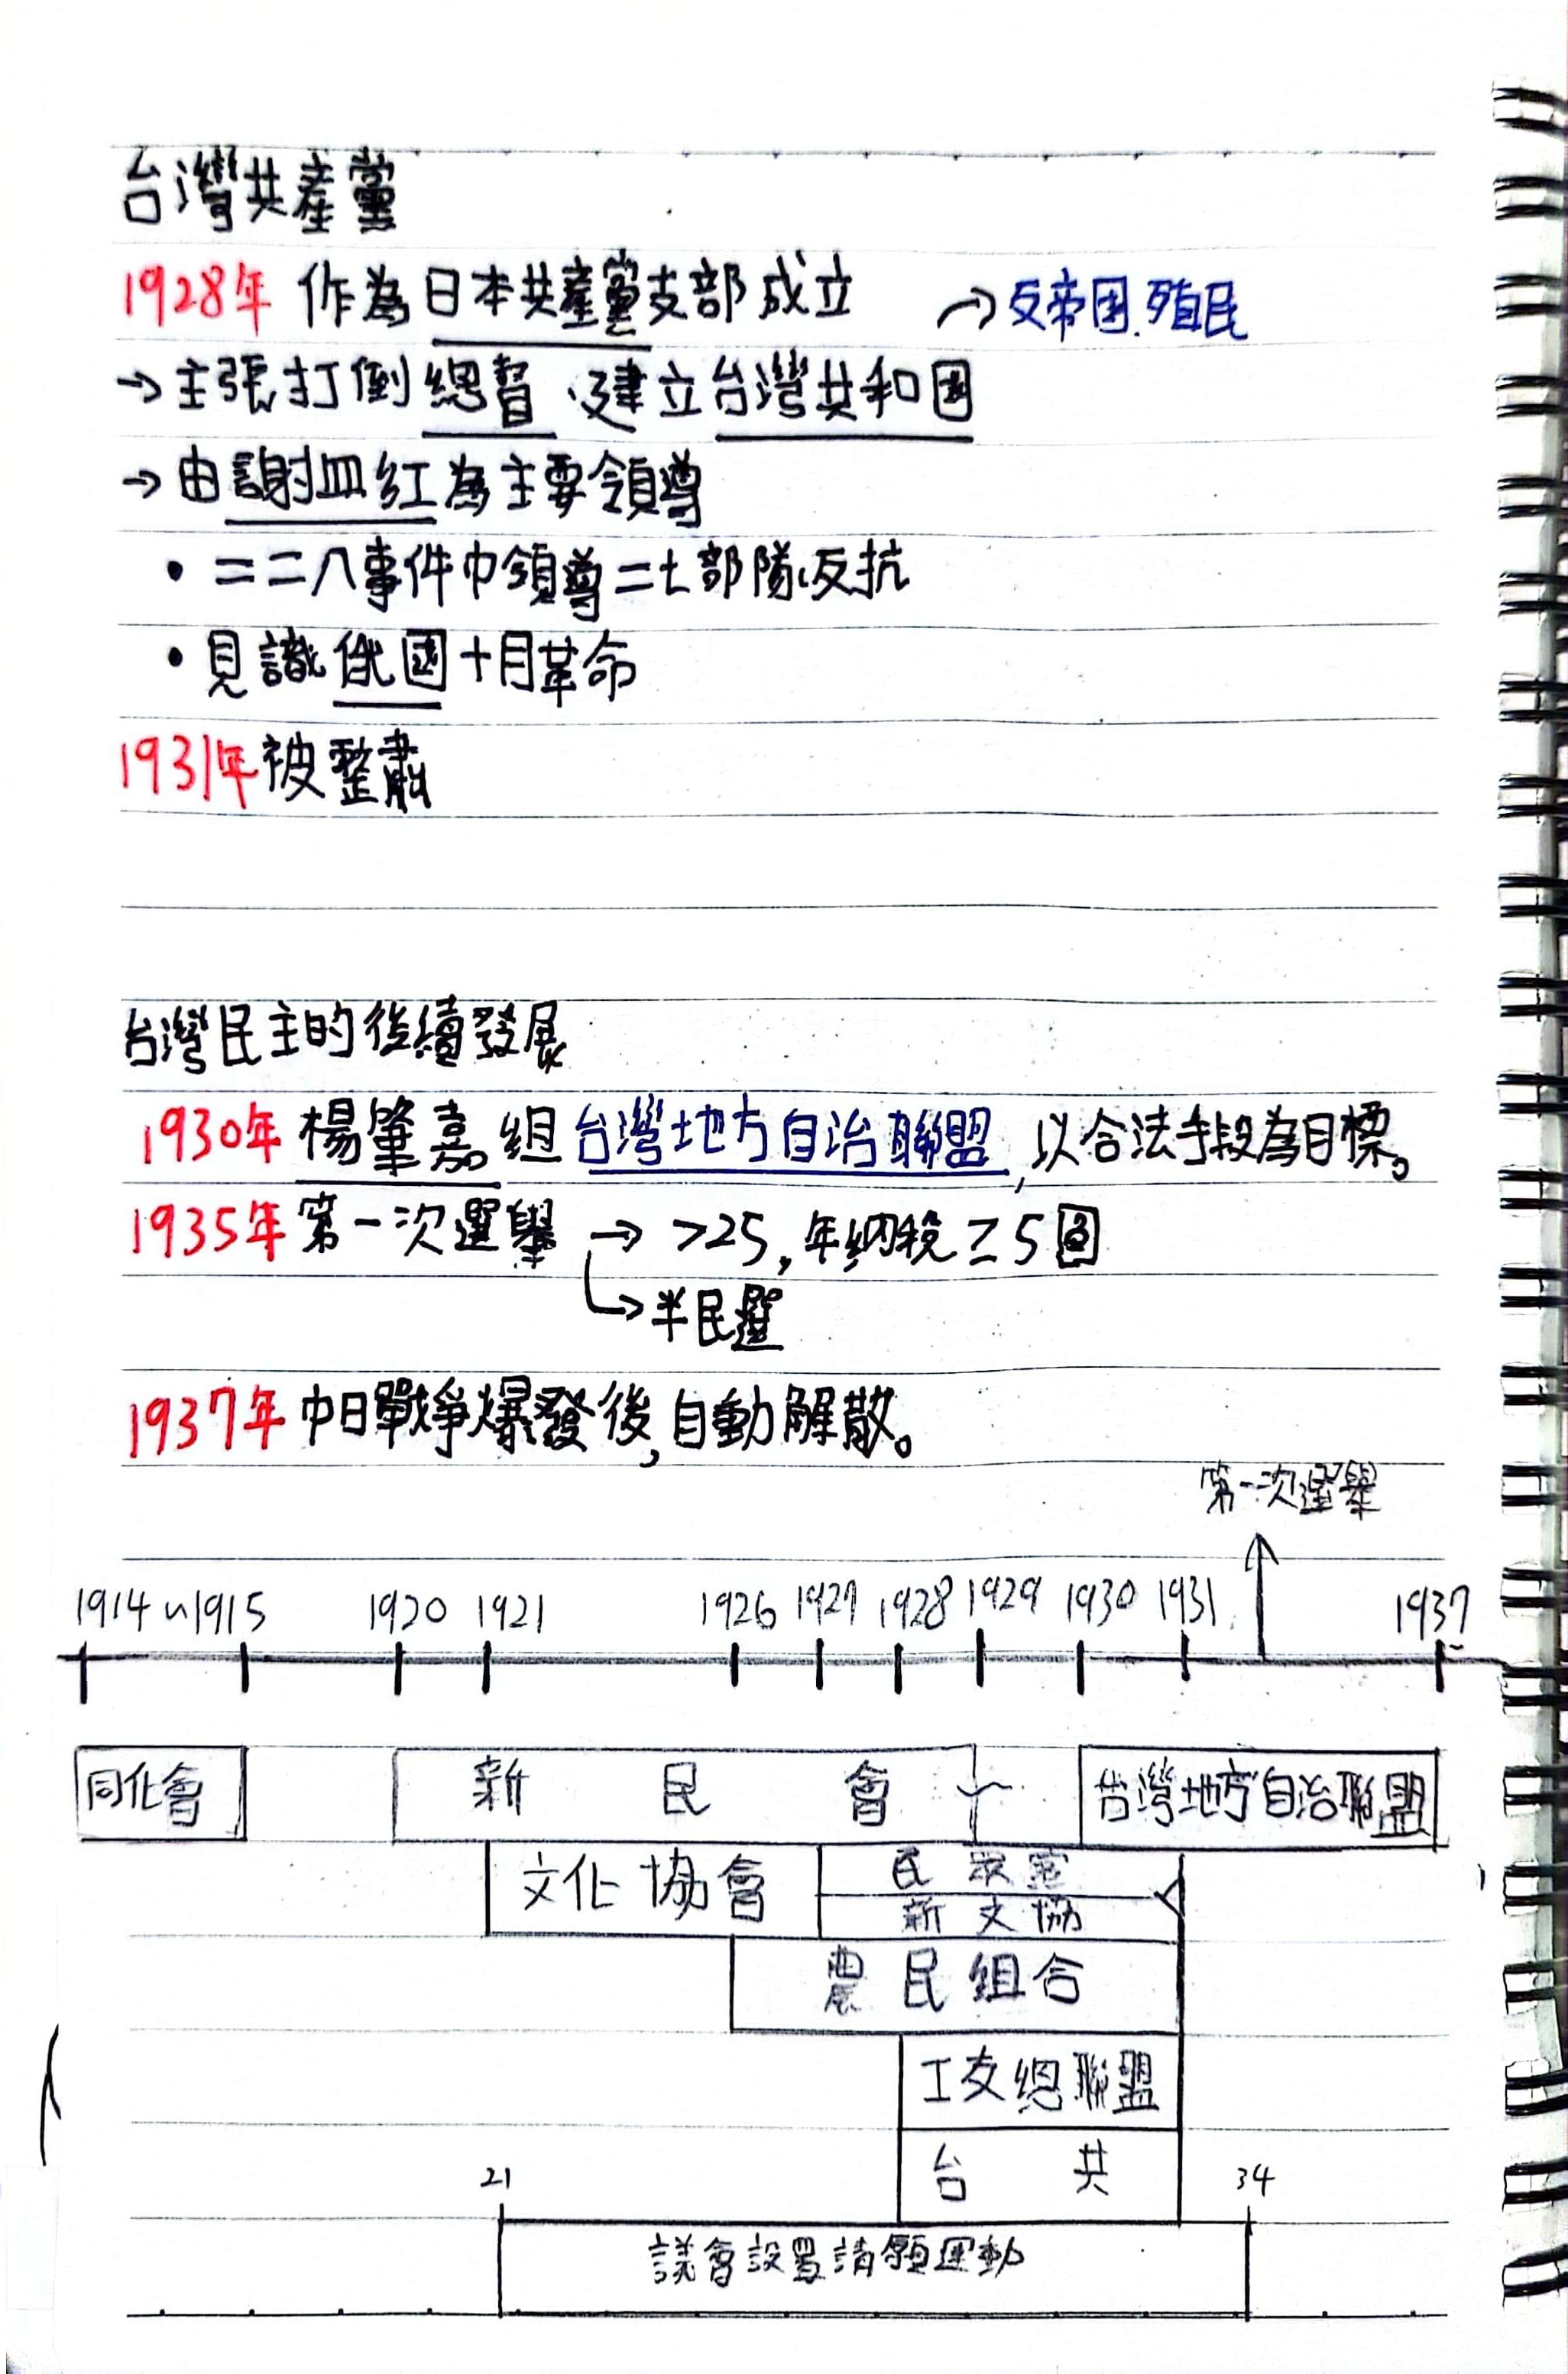 台灣共產黨
1928年 作為日本共產黨支部成立 → 反帝国.殖民
→主張打倒總督、建立台灣共和国
→由謝血紅為主要領導
• 二二八事件中領導二七部隊反抗
• 見識俄國十月革命
1931年被整肅
台灣民主的後續發展
1930年 楊肇嘉組台灣地方自治聯盟,以合法手段為目標。
1935年第一次選舉 → >25,年納稅≥5圓
→半民選
1937年中日戰爭爆發後,自動解散。
第一次選舉
1914~1915 1920 1921 1926 1927 1928 1929 1930 1931 1937
同化會 新民會 台灣地方自治聯盟
文化協會 民眾黨
新文協
農民組合
工友總聯盟
台共
21 34
議會設置請願運動